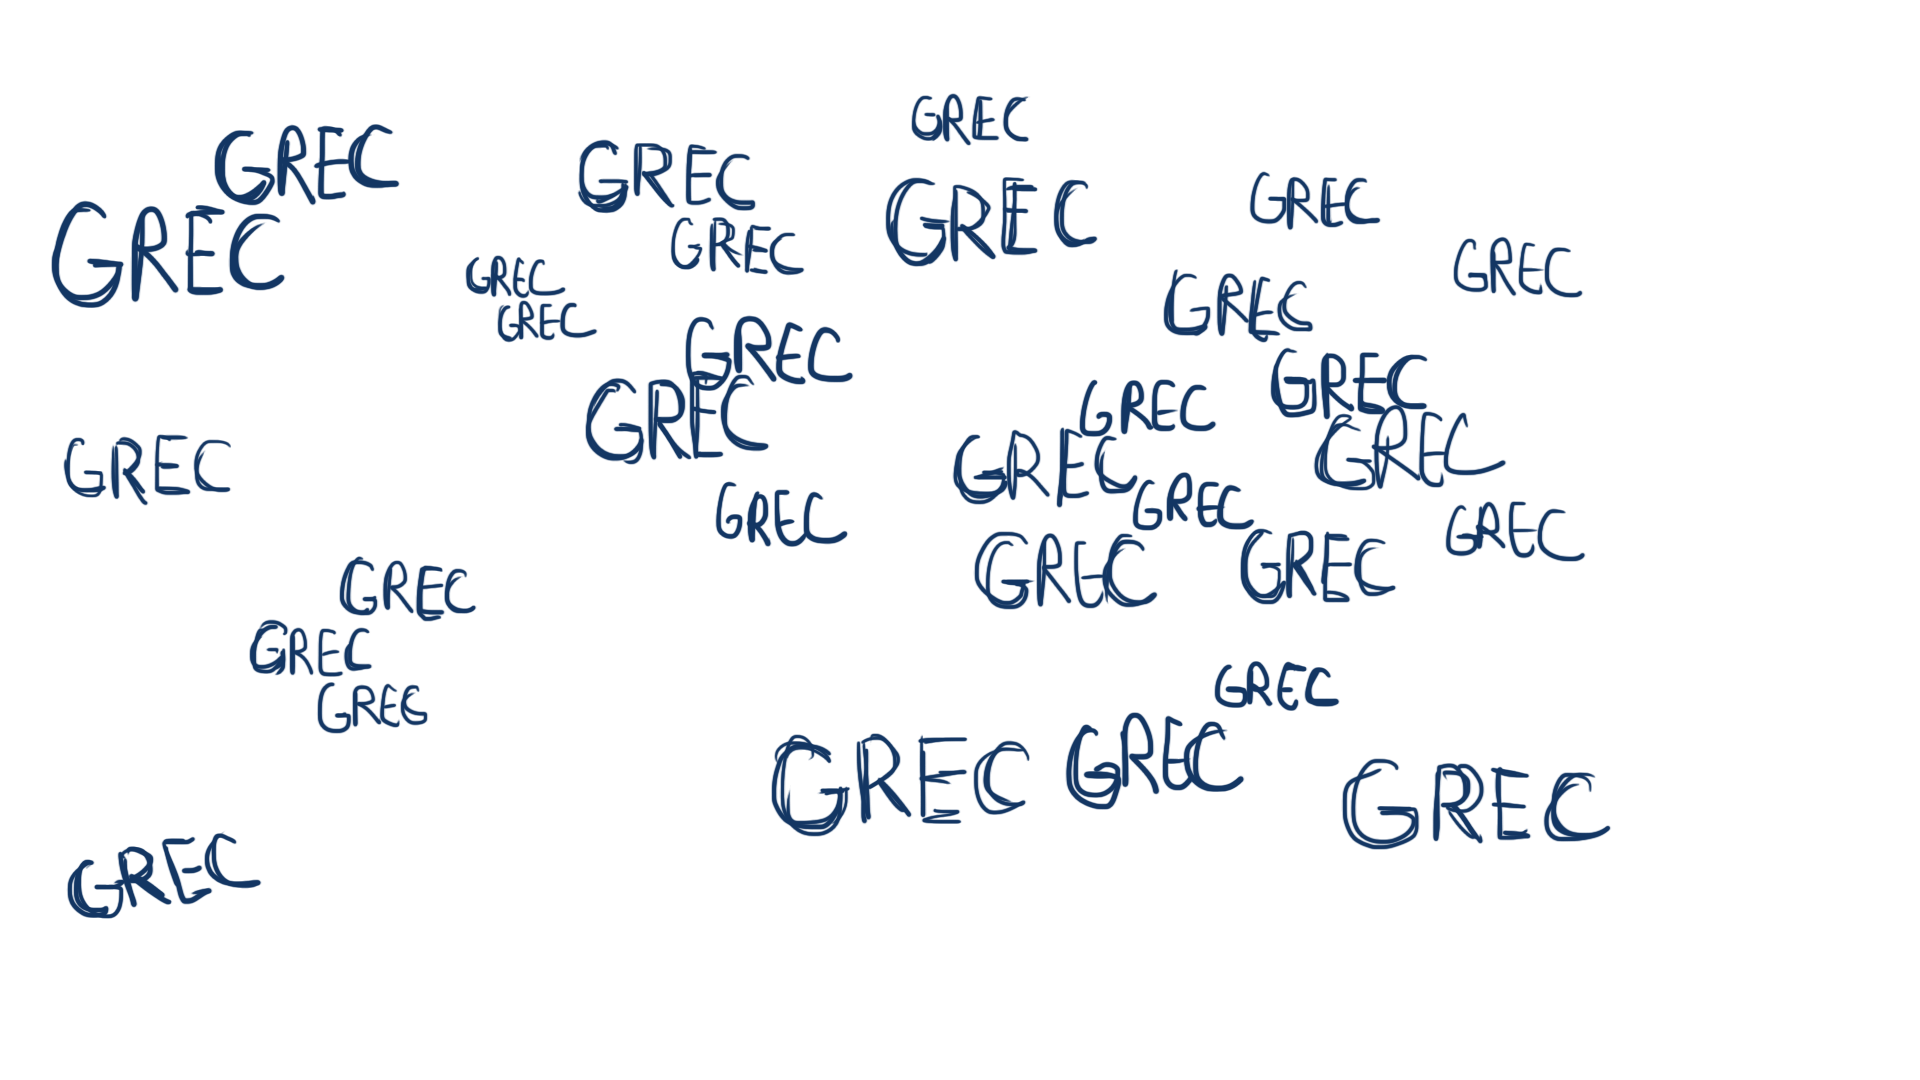 GREC
GREC
GREC
GREC
GREC
GREC
GREC
GREC
GREC
GREC
GREC
GREC
GREC
GREC
GREC
GREC
GREC
GREC
GREC
GREC
GREC
GREC
GREC
GREC
GREC
GREC
GREC
GREC
GREC
GREC
GREC